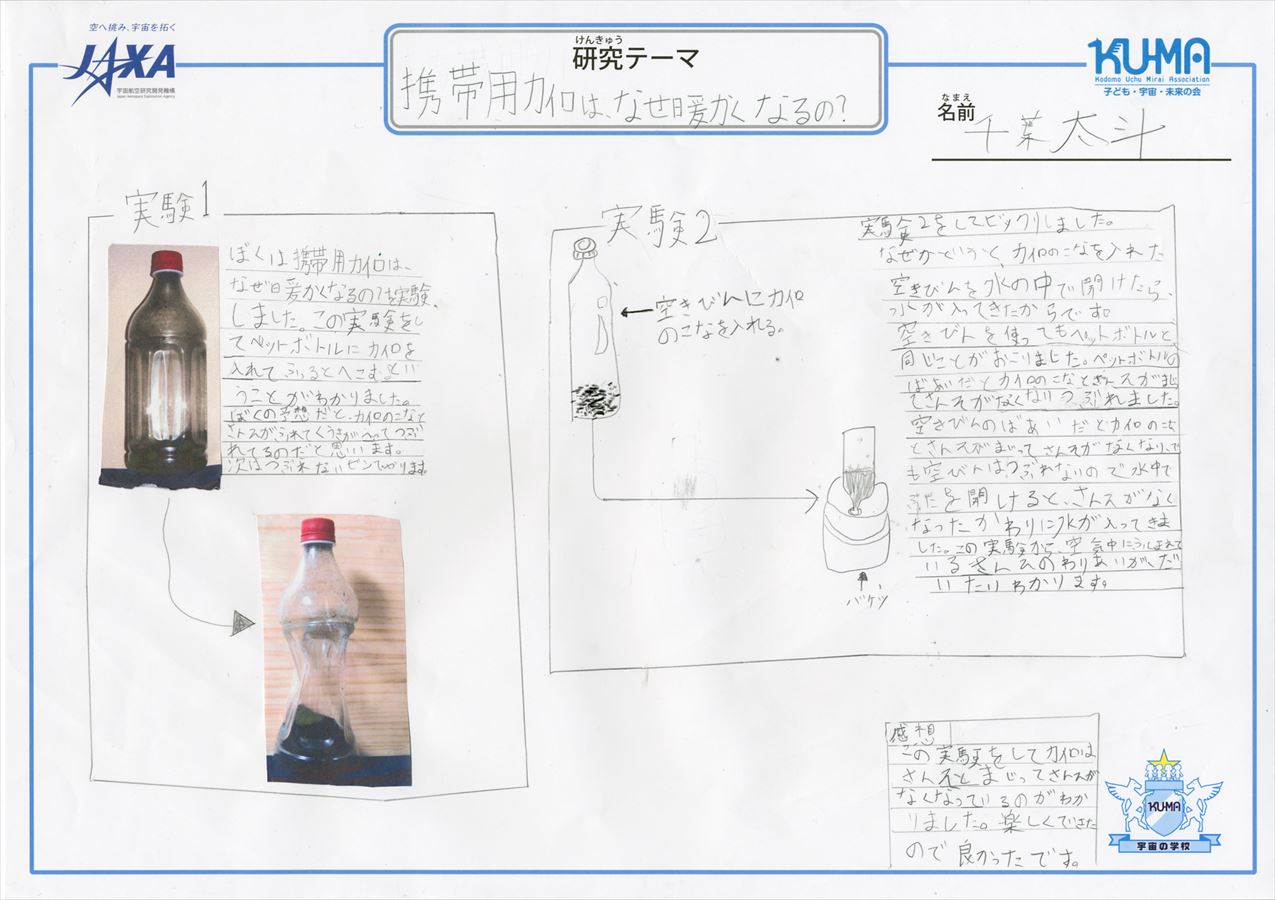 空へ挑み、宇宙を拓く
JAXA
宇宙航空研究開発機構
Japan Aerospace Exploration Agency
けんきゅう
研究テーマ
携帯用カイロは、なぜ暖かくなるの?
KU-MA
Kodomo Uchu Mirai Association
子ども・宇宙・未来の会
なまえ
名前
千葉太斗
実験1
ぼくは携帯用カイロは、
なぜ暖かくなるの?を実験
しました。この実験をし
てペットボトルにカイロを
入れてふるとへこむとい
うことがわかりました。
ぼくの予想だと、カイロのこなと
さんそがふれてくうきがへってつぶ
れてるのだと思います。
次はつぶれないビンでやります。
実験2
空きびんにカイロ
のこなを入れる。
バケツ
実験2をしてビックリしました。
なぜかというと、カイロのこなを入れた
空きびんを水の中で開けたら、
水が入ってきたからです。
空きびんを使ってもペットボトルと
同じことがおこりました。ペットボトルの
ばあいだとカイロのこなとさんそがまじっ
てさんそがなくなりつぶれました。
空きびんのばあいだとカイロのこな
とさんそがまじってさんそがなくなり、で
も空びんはつぶれないので水中で
ふたを開けると、さんそがなく
なったかわりに水が入ってきま
した。この実験から、空気中にふくまれて
いるさんそのわりあいが、だ
いたいわかります。
感想
この実験をしてカイロは
さんそとまじってさんそが
なくなっているのがわか
りました。楽しくできた
ので良かったです。
KU-MA
宇宙の学校